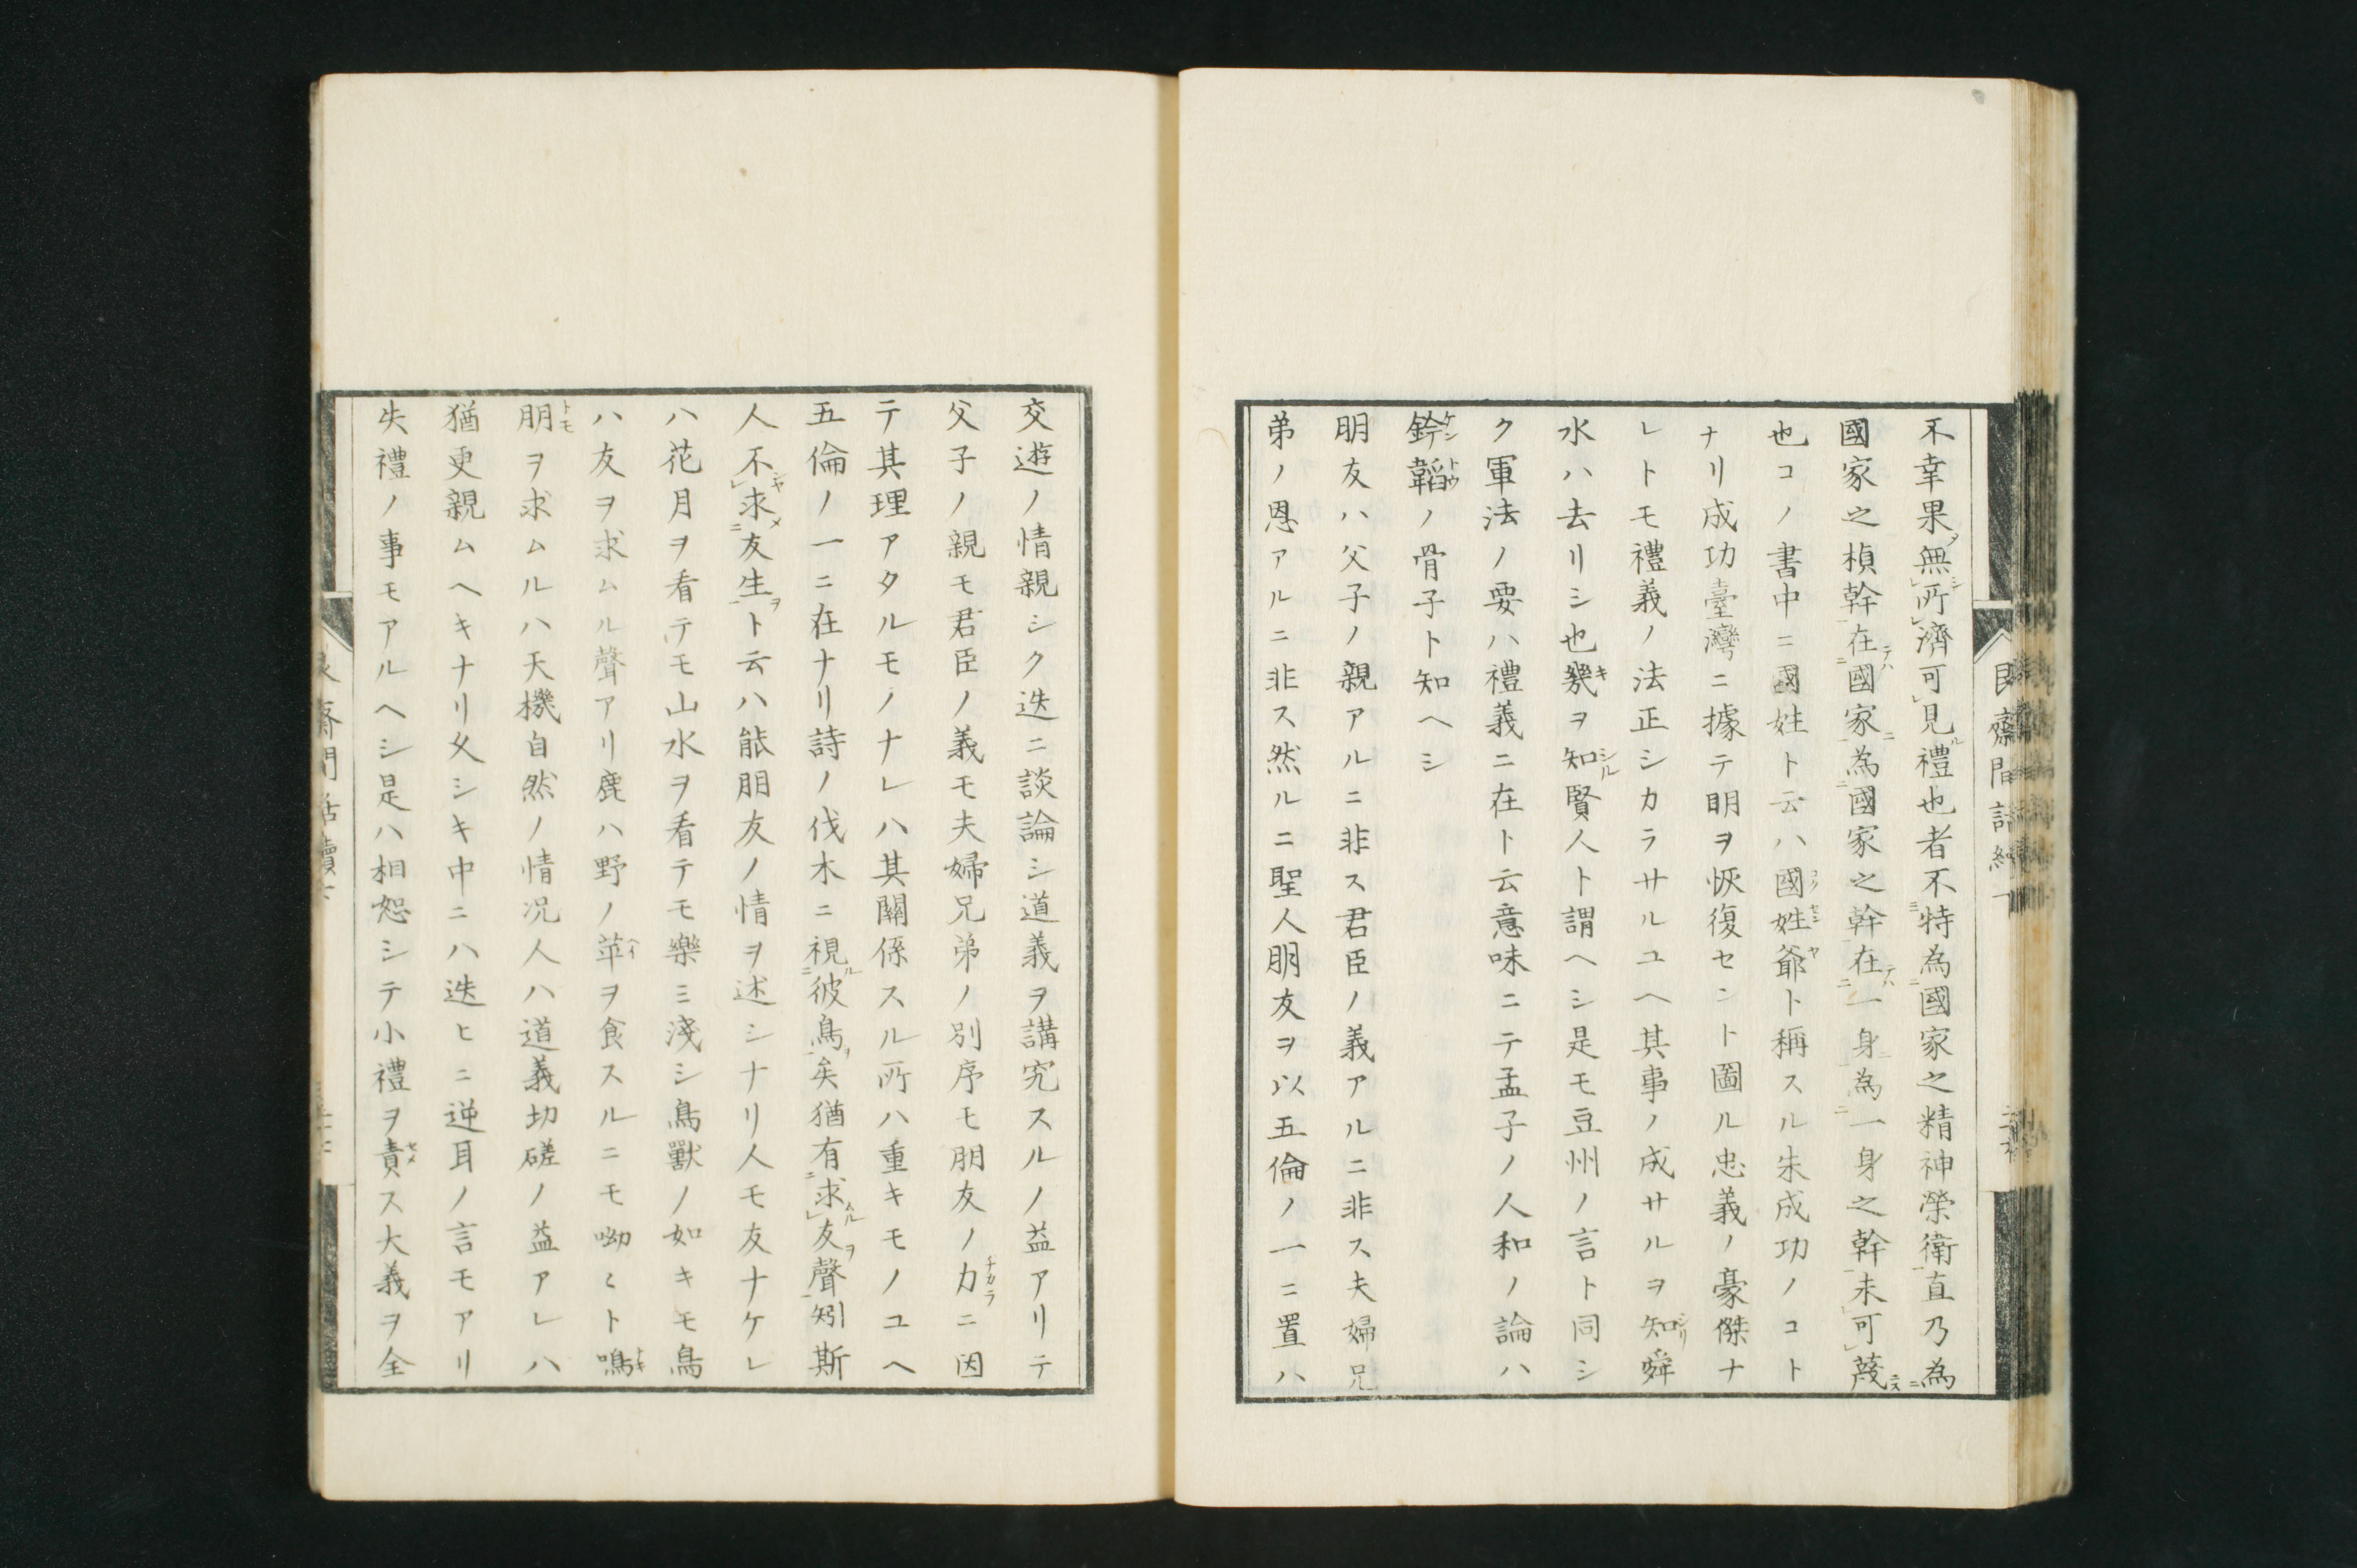 不幸果無所濟可見禮也者不特為國家之精神榮衛直乃為
國家之楨幹在國家為國家之幹在一身為一身之幹未可蔑
也コノ書中ニ國姓ト云ハ國姓爺ト稱スル朱成功ノコト
ナリ成功臺灣ニ據テ明ヲ恢復セント圖ル忠義ノ豪傑ナ
レトモ禮義ノ法正シカラサルユヘ其事ノ成サルヲ知舜
水ハ去リシ也幾ヲ知賢人ト謂ヘシ是モ豆州ノ言ト同シ
ク軍法ノ要ハ禮義ニ在ト云意味ニテ孟子ノ人和ノ論ハ
鈐韜ノ骨子ト知ヘシ
朋友ハ父子ノ親アルニ非ス君臣ノ義アルニ非ス夫婦兄
弟ノ恩アルニ非ス然ルニ聖人朋友ヲ以五倫ノ一ニ置ハ
交遊ノ情親シク迭ニ談論シ道義ヲ講究スルノ益アリテ
父子ノ親モ君臣ノ義モ夫婦兄弟ノ別序モ朋友ノ力ニ因
テ其理アタルモノナレハ其關係スル所ハ重キモノユヘ
五倫ノ一ニ在ナリ詩ノ伐木ニ視彼鳥矣猶有求友聲矧斯
人不求友生ト云ハ能朋友ノ情ヲ述シナリ人モ友ナケレ
ハ花月ヲ看テモ山水ヲ看テモ樂ミ淺シ鳥獸ノ如キモ鳥
ハ友ヲ求ムル聲アリ鹿ハ野ノ苹ヲ食スルニモ呦〻ト鳴
朋ヲ求ムルハ天機自然ノ情况人ハ道義切磋ノ益アレハ
猶更親ムヘキナリ久シキ中ニハ迭ヒニ逆耳ノ言モアリ
失禮ノ事モアルヘシ是ハ相恕シテ小禮ヲ責ス大義ヲ全